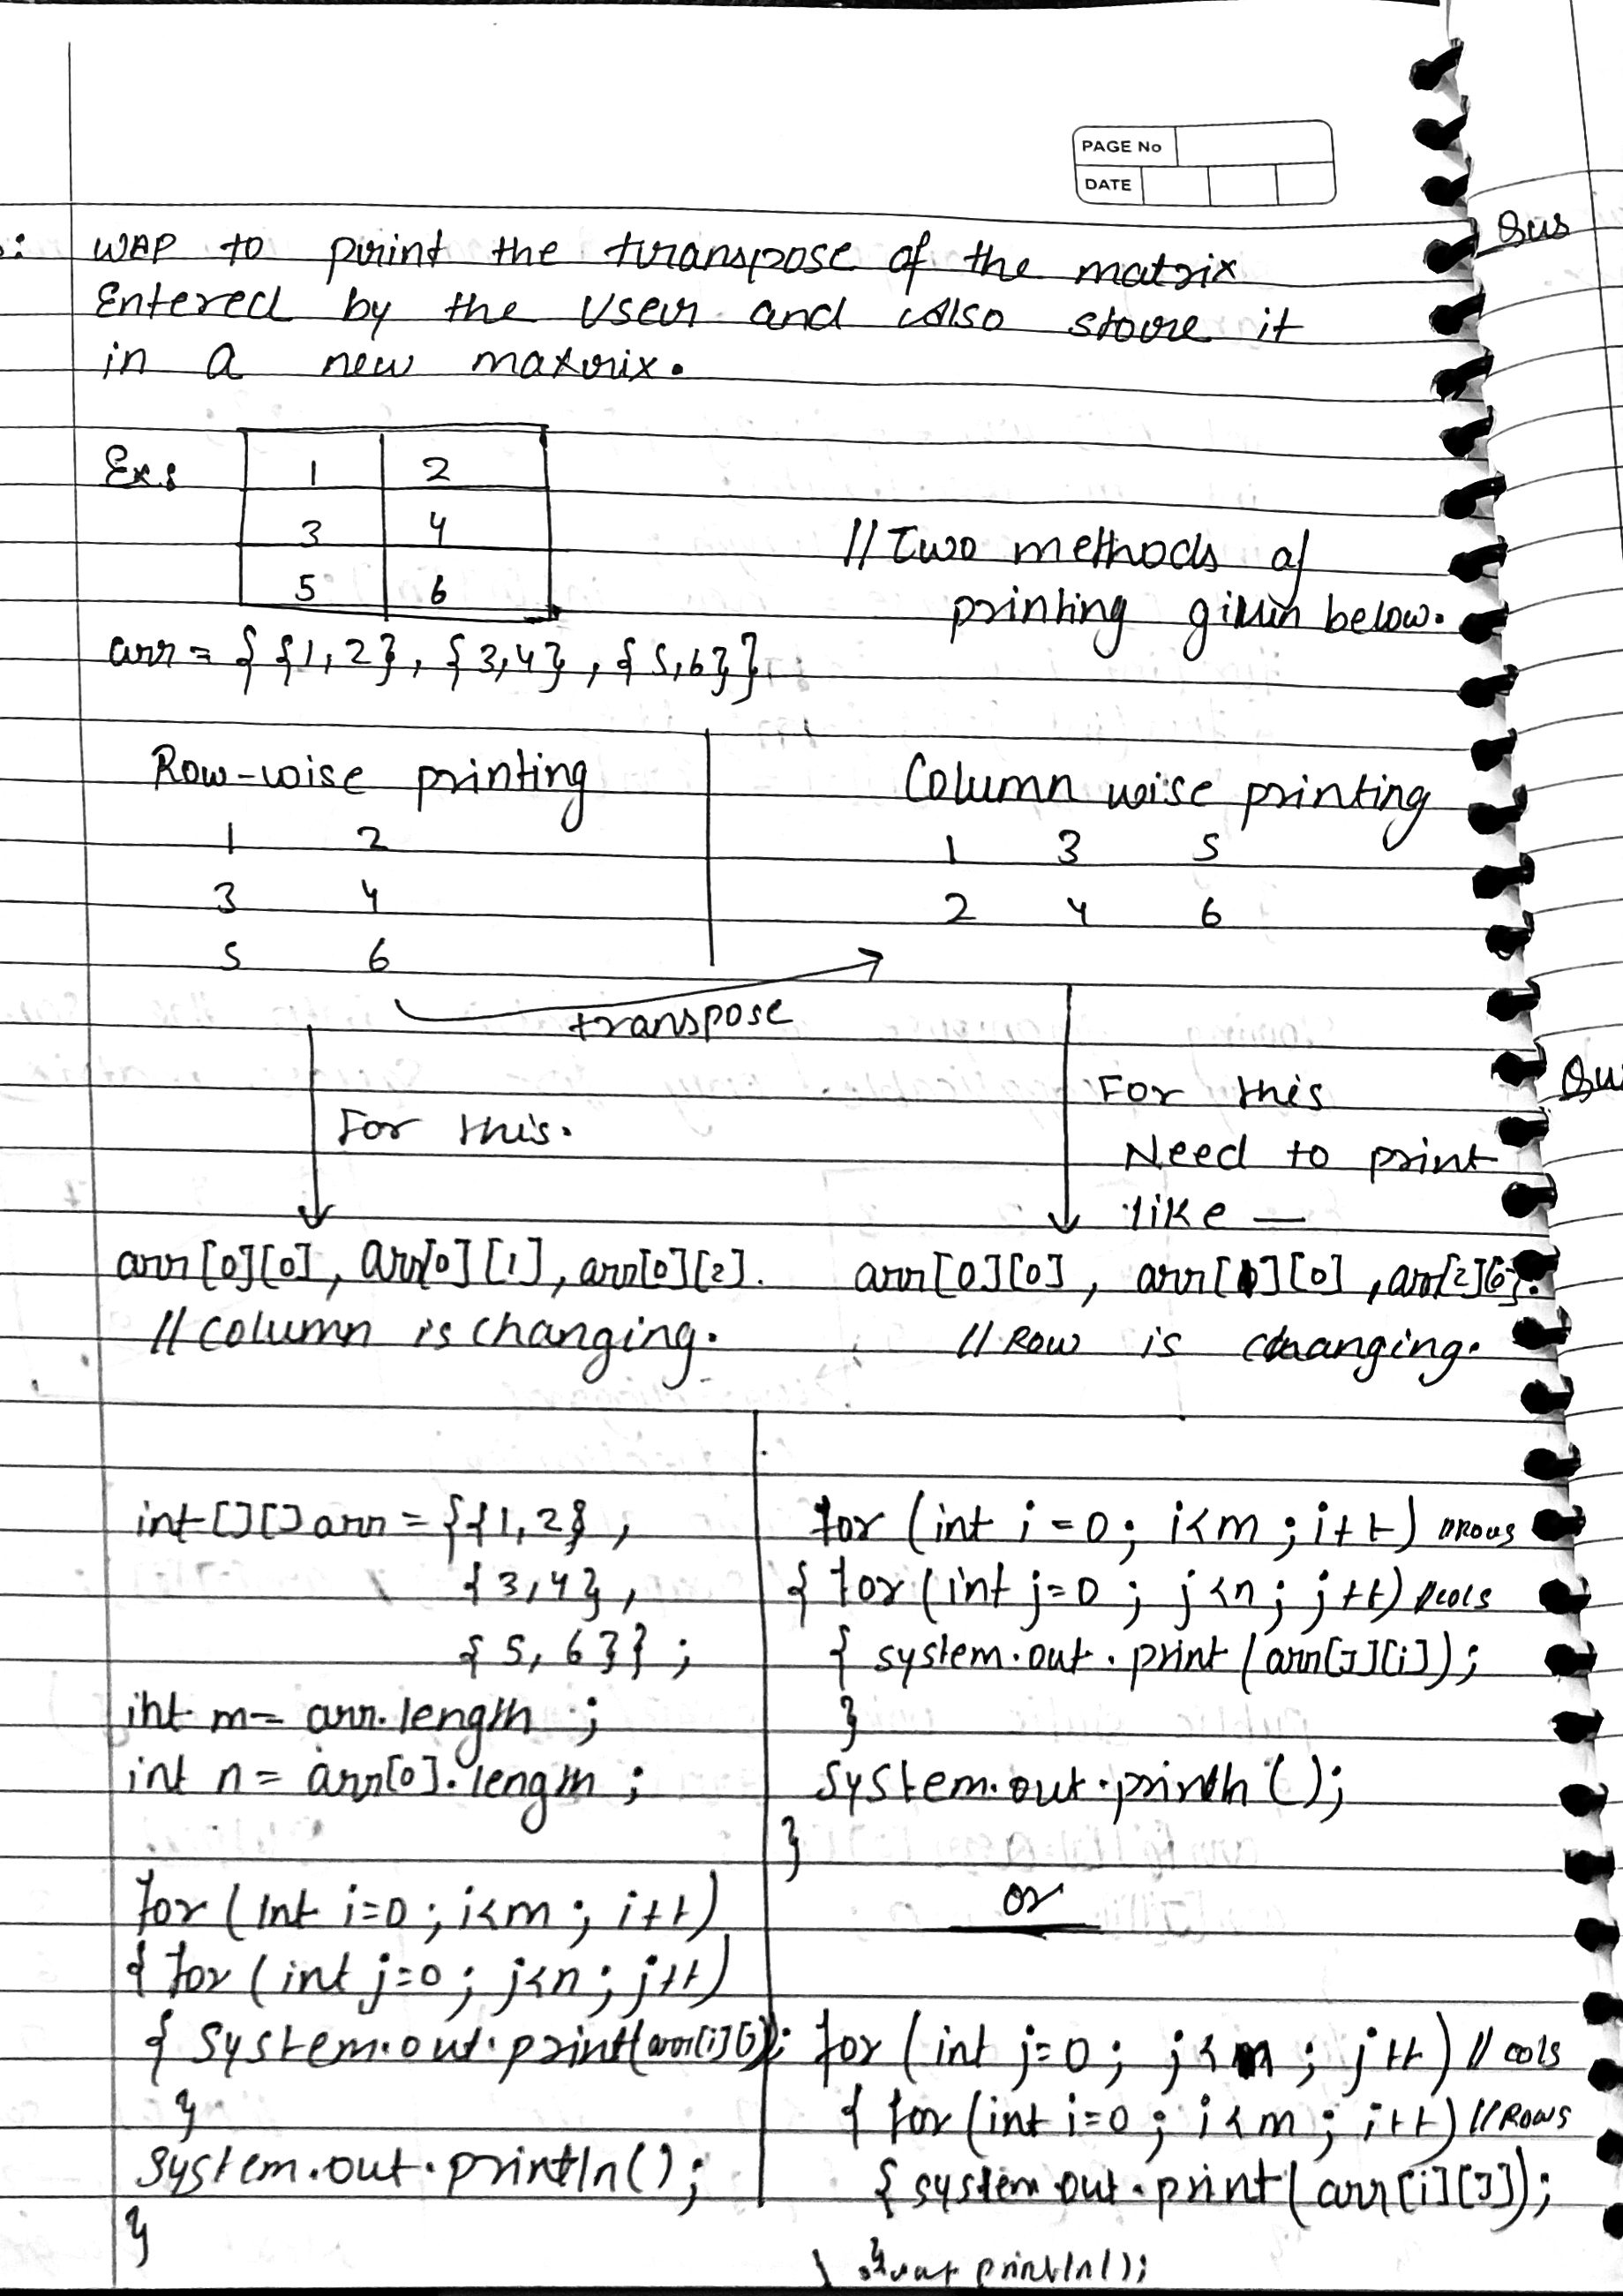 PAGE No
DATE
Qus
WAP to print the transpose of the matrix
Entered by the User and also store it
in a new matrix.
Ex:
1 2
3 4
5 6
// Two methods of
printing given below.
arr = { {1,2}, {3,4}, {5,6}}
Row-wise printing
1 2
3 4
5 6
Column wise printing
1 3 5
2 4 6
transpose
For this.
For this
Need to print
like —
arr[0][0], arr[0][1], arr[0][2].
// Column is changing.
arr[0][0], arr[1][0], arr[2][0].
// Row is changing.
int[][] arr = {{1,2},
{3,4},
{5,6}};
int m = arr.length ;
int n = arr[0].length ;
for (int i=0 ; i<m ; i++)
{ for (int j=0 ; j<n ; j++)
{ System.out.print(arr[i][j]);
}
System.out.println();
}
for (int i=0; i<m ; i++) // Rows
{ for (int j=0 ; j<n ; j++) // cols
{ system.out.print(arr[J][i]);
}
System.out.println();
}
or
for (int j=0 ; j< ; j++) // cols
{ for (int i=0 ; i<m ; i++) // ROWS
{ system.out.print(arr[i][J]);
}
println();